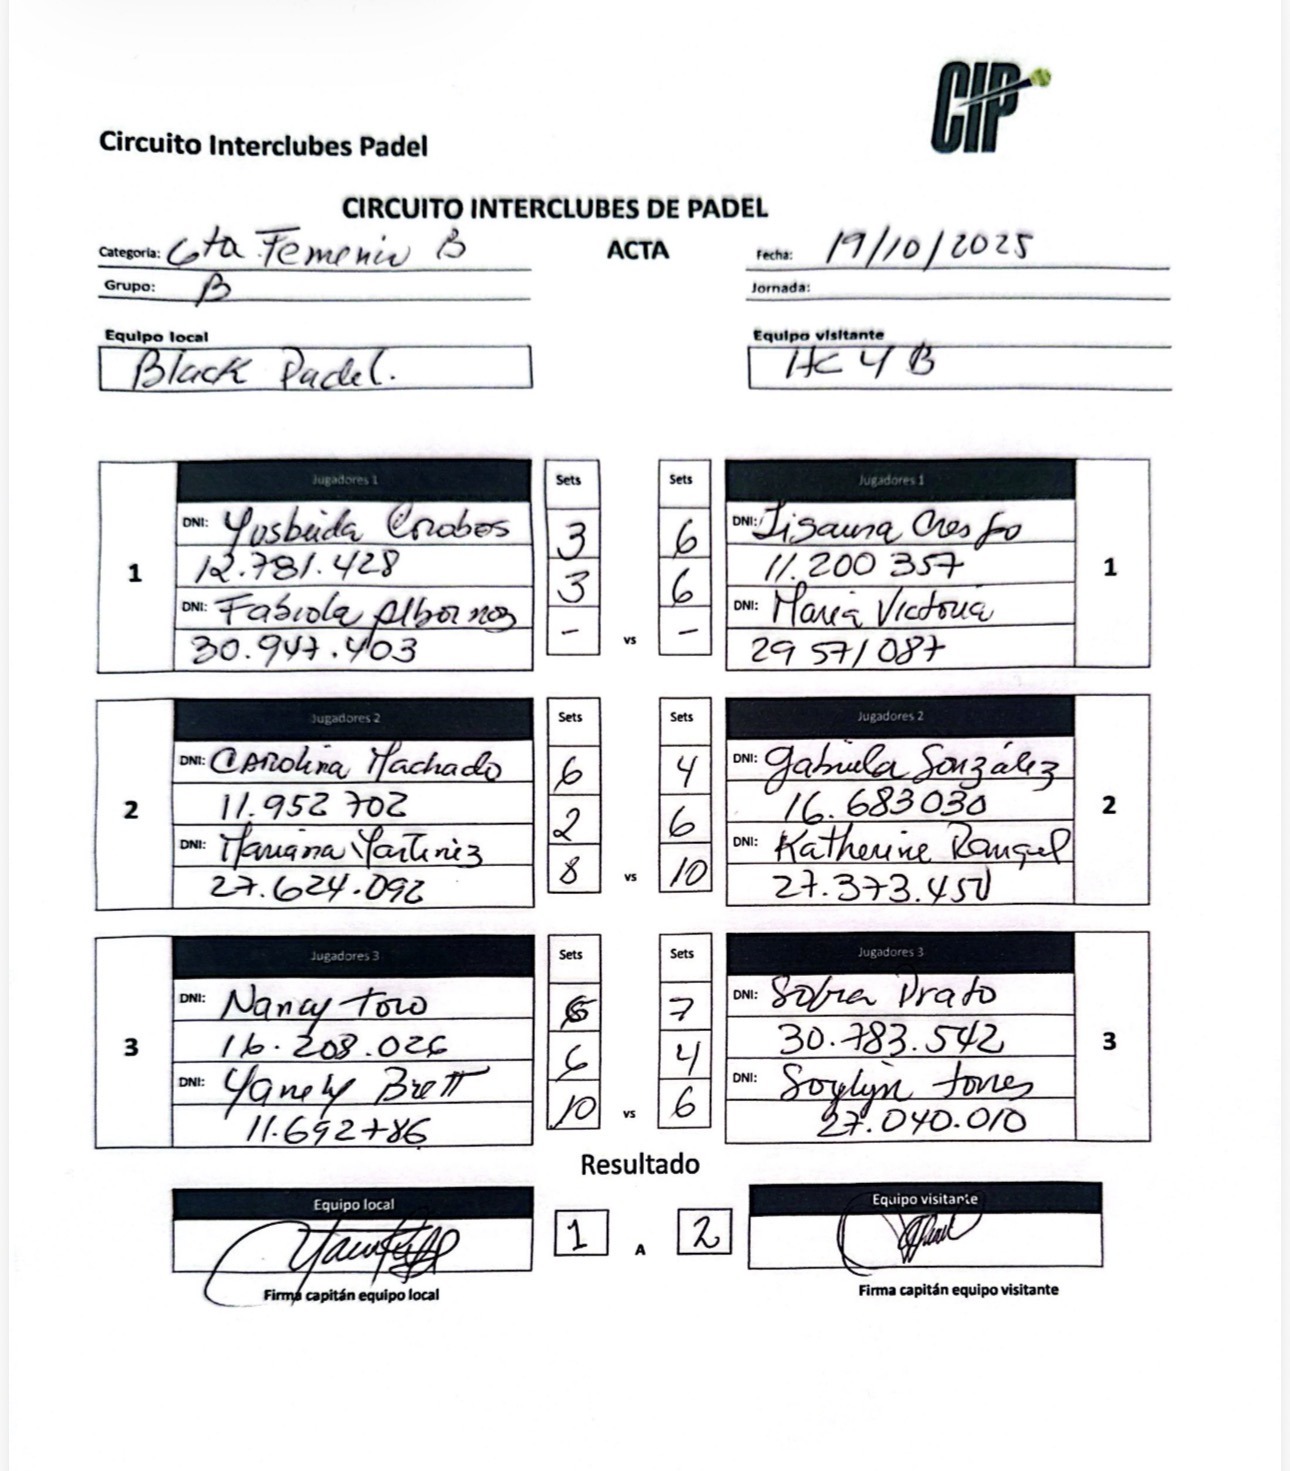 CIP
Circuito Interclubes Padel
CIRCUITO INTERCLUBES DE PADEL
Categoría: 6ta Femenin B
ACTA
Fecha: 19/10/2025
Grupo: B
Jornada:
Equipo local
Equipo visitante
Black Padel.
HC 4 B
1
Jugadores 1
Sets
Sets
Jugadores 1
1
DNI: Yusbeida Corobos
3
6
DNI: Lisaura Crespo
12.781.428
11.200 357
3
6
DNI: Fabiola Albornoz
DNI: Maria Victoria
30.947.403
-
vs
-
29 571 087
2
Jugadores 2
Sets
Sets
Jugadores 2
2
DNI: Carolina Machado
6
4
DNI: Gabriela González
11.952 702
16.683030
2
6
DNI: Mariana Martinez
DNI: Katherine Rangel
27.624.092
8
vs
10
27.373.450
3
Jugadores 3
Sets
Sets
Jugadores 3
3
DNI: Nancy Toro
7
DNI: Sofia Prato
16.208.026
30.783.542
6
4
DNI: Yanely Brett
DNI: Soylyn Torres
11.692786
10
vs
6
27.040.010
Resultado
Equipo local
1
A
2
Equipo visitante
Firma capitán equipo local
Firma capitán equipo visitante